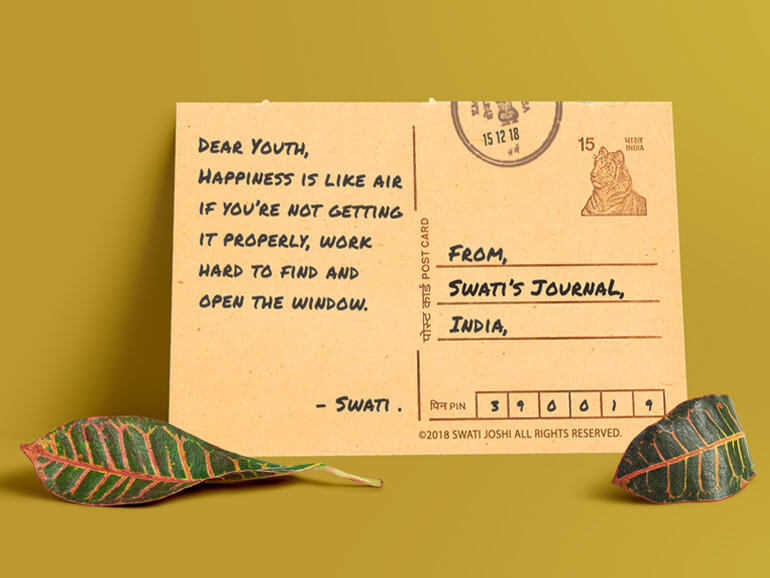 DEAR YOUTH,
HAPPINESS IS LIKE AIR
IF YOU'RE NOT GETTING
IT PROPERLY, WORK
HARD TO FIND AND
OPEN THE WINDOW.
- SWATI .
पोस्ट कार्ड POST CARD
15 12 18
15 भारत
INDIA
FROM,
SWATI'S JOURNAL,
INDIA,
पिन PIN 3 9 0 0 1 9
©2018 SWATI JOSHI ALL RIGHTS RESERVED.